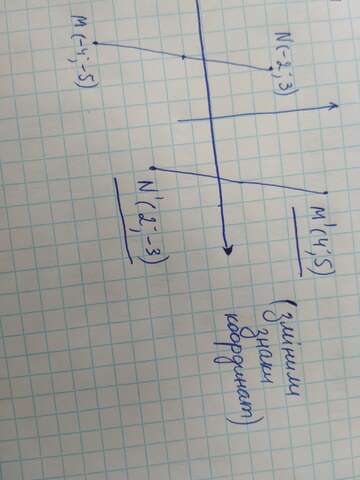 N(-2; 3)
M'(4; 5)
M(-4; -5)
N'(2; -3)
(змінили
знаки
координат)